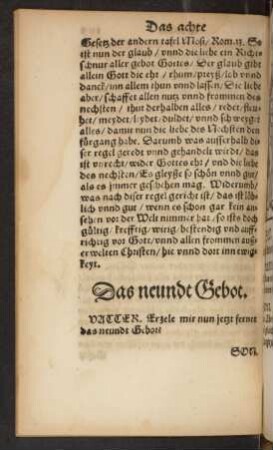 Das achte
Gesetz der andern tafel Mosi / Rom. 13. So
ist nun der glaub / vnnd die liebe ein Richt-
schnur aller gebot Gottes / Der glaub gibt
allein Gott die eht / rhum / preyß / lob vnnd
danck / inn allem thun vnnd lassen / Die liebe
aber / schaffet allen nutz vnnd frommen des
nechsten / thut derhalben alles / redet / fleu-
het / meydet / leydet / duldet / vnnd schweyget
alles / damit nun die liebe des Nechsten den
fürgang habe. Darumb was ausserhalb di-
ser regel geredt vnnd gehandelt wirdt / das
ist vnrecht / wider Gottes eht / vnd die liebe
des nechsten / Es gleyße so schön vnnd gut /
als es jmmer geschehen mag. Widerumb /
was nach diser regel gericht ist / das ist löb-
lich vnnd gut / wenn es schon gar kein an-
sehen vor der Welt nimmer hat / so ists doch
gültig / krefftig / wirig / bestendig vnd auff-
richtig vor Gott / vnnd allen frommen auß-
erwelten Christen / hie vnnd dort inn ewig-
keyt.
Das neundt Gebot.
VATTER. Erzele mir nun jetzt ferner
das neundt Gebott
SON.